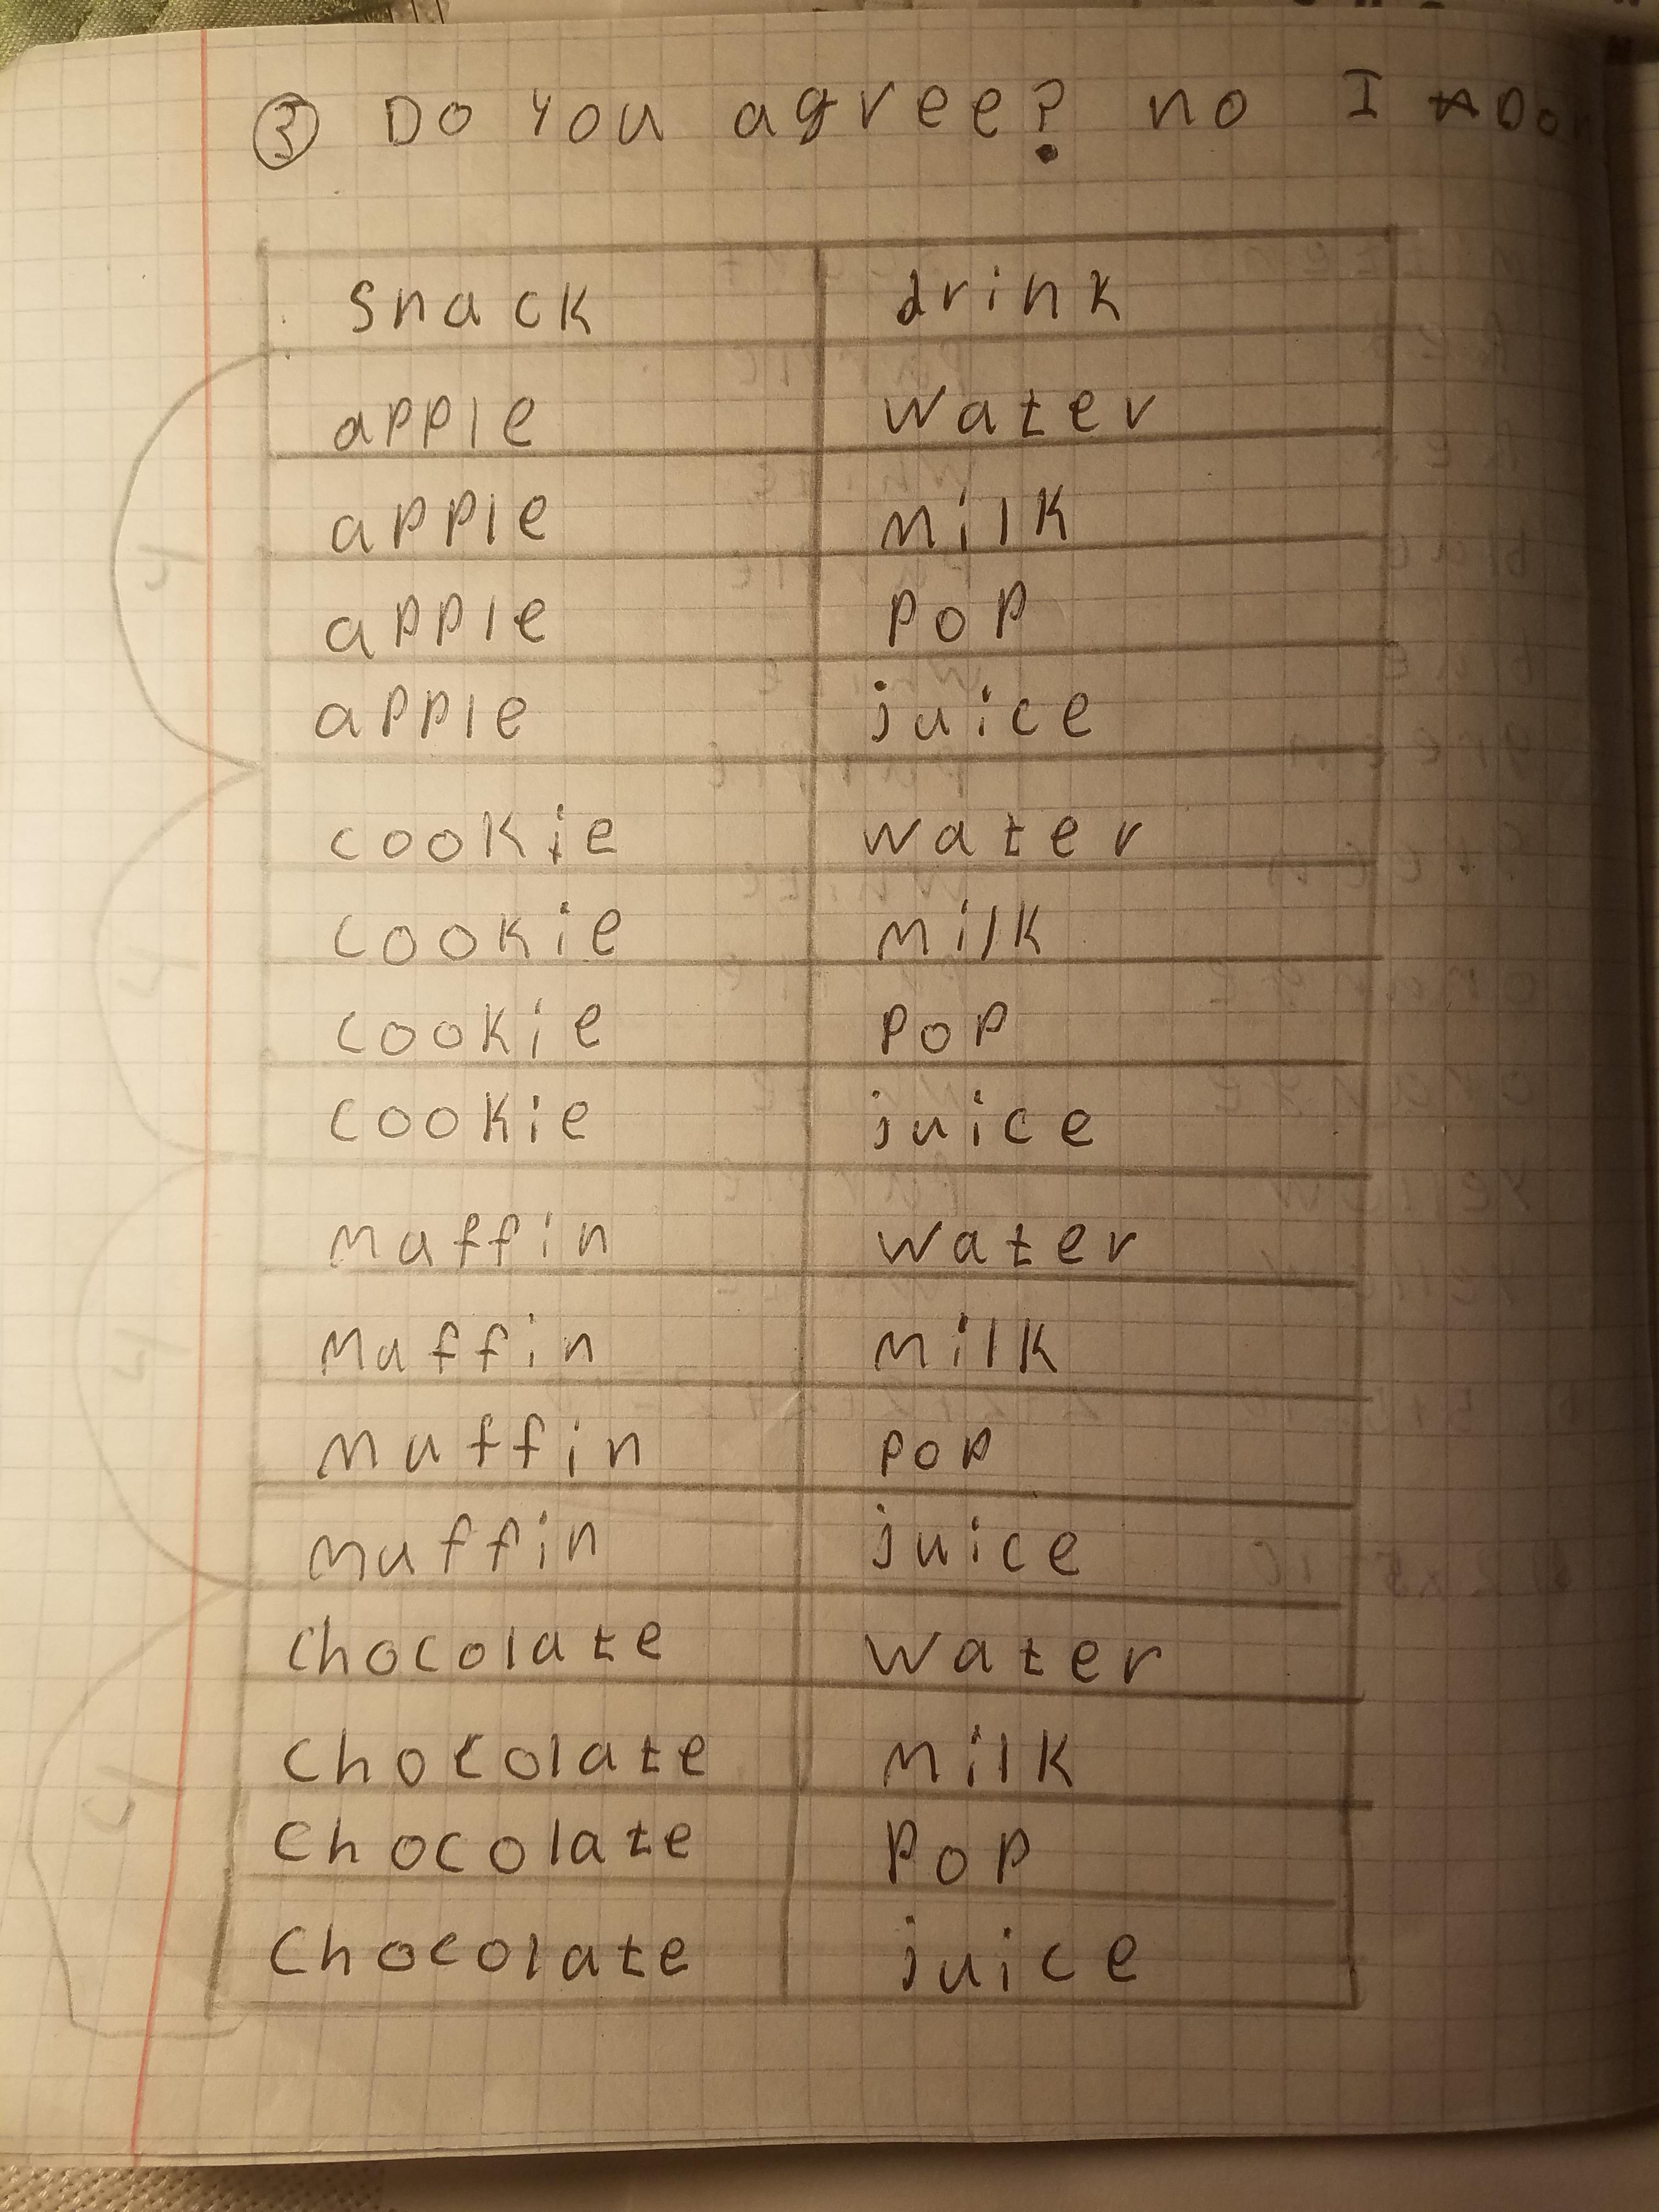 ③ Do you agree? no I Don
snack drink
apple water
apple milk
apple pop
apple juice
cookie water
cookie milk
cookie pop
cookie juice
muffin water
muffin milk
muffin pop
muffin juice
chocolate water
chocolate milk
chocolate pop
chocolate juice
4
4
4
4